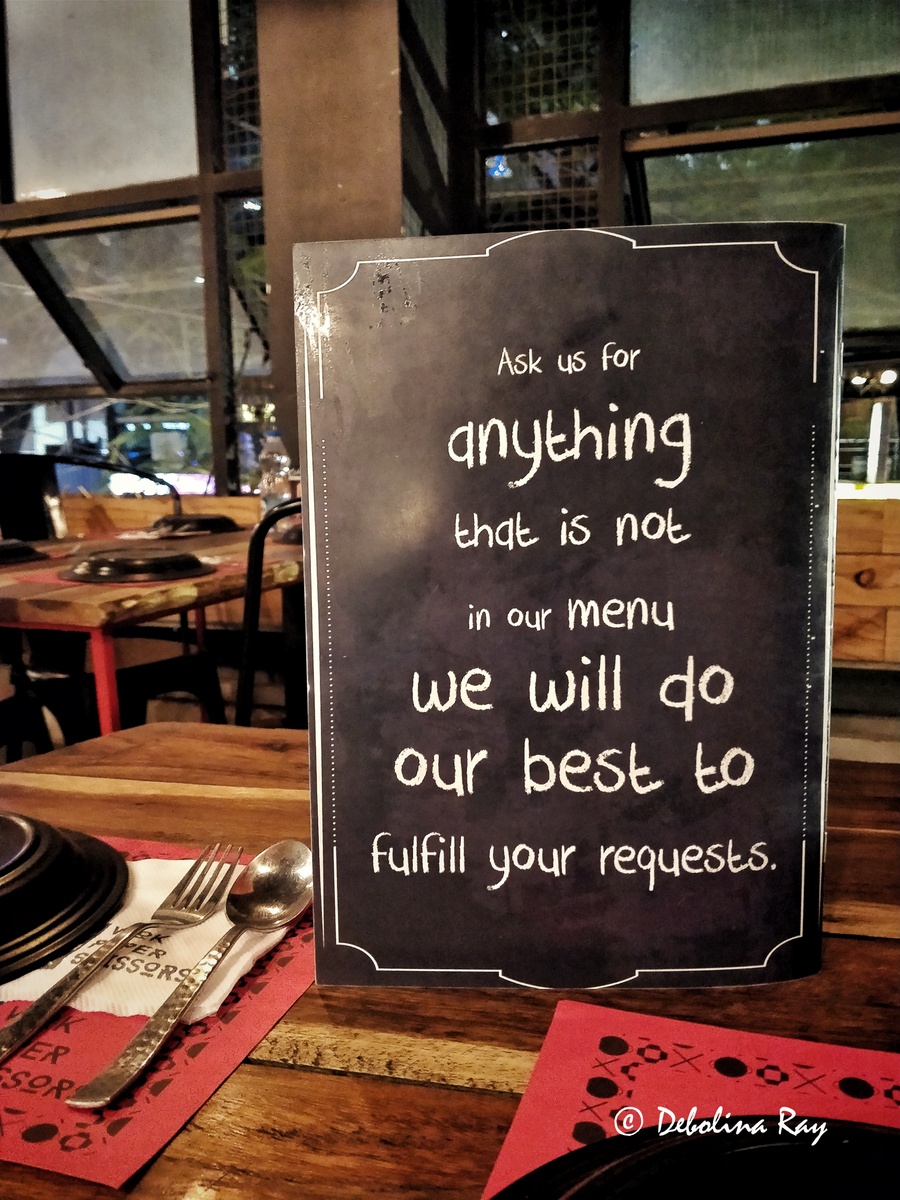 Ask us for
anything
that is not
in our menu
we will do
our best to
fulfill your requests.
SCISSORS
© Debolina Ray